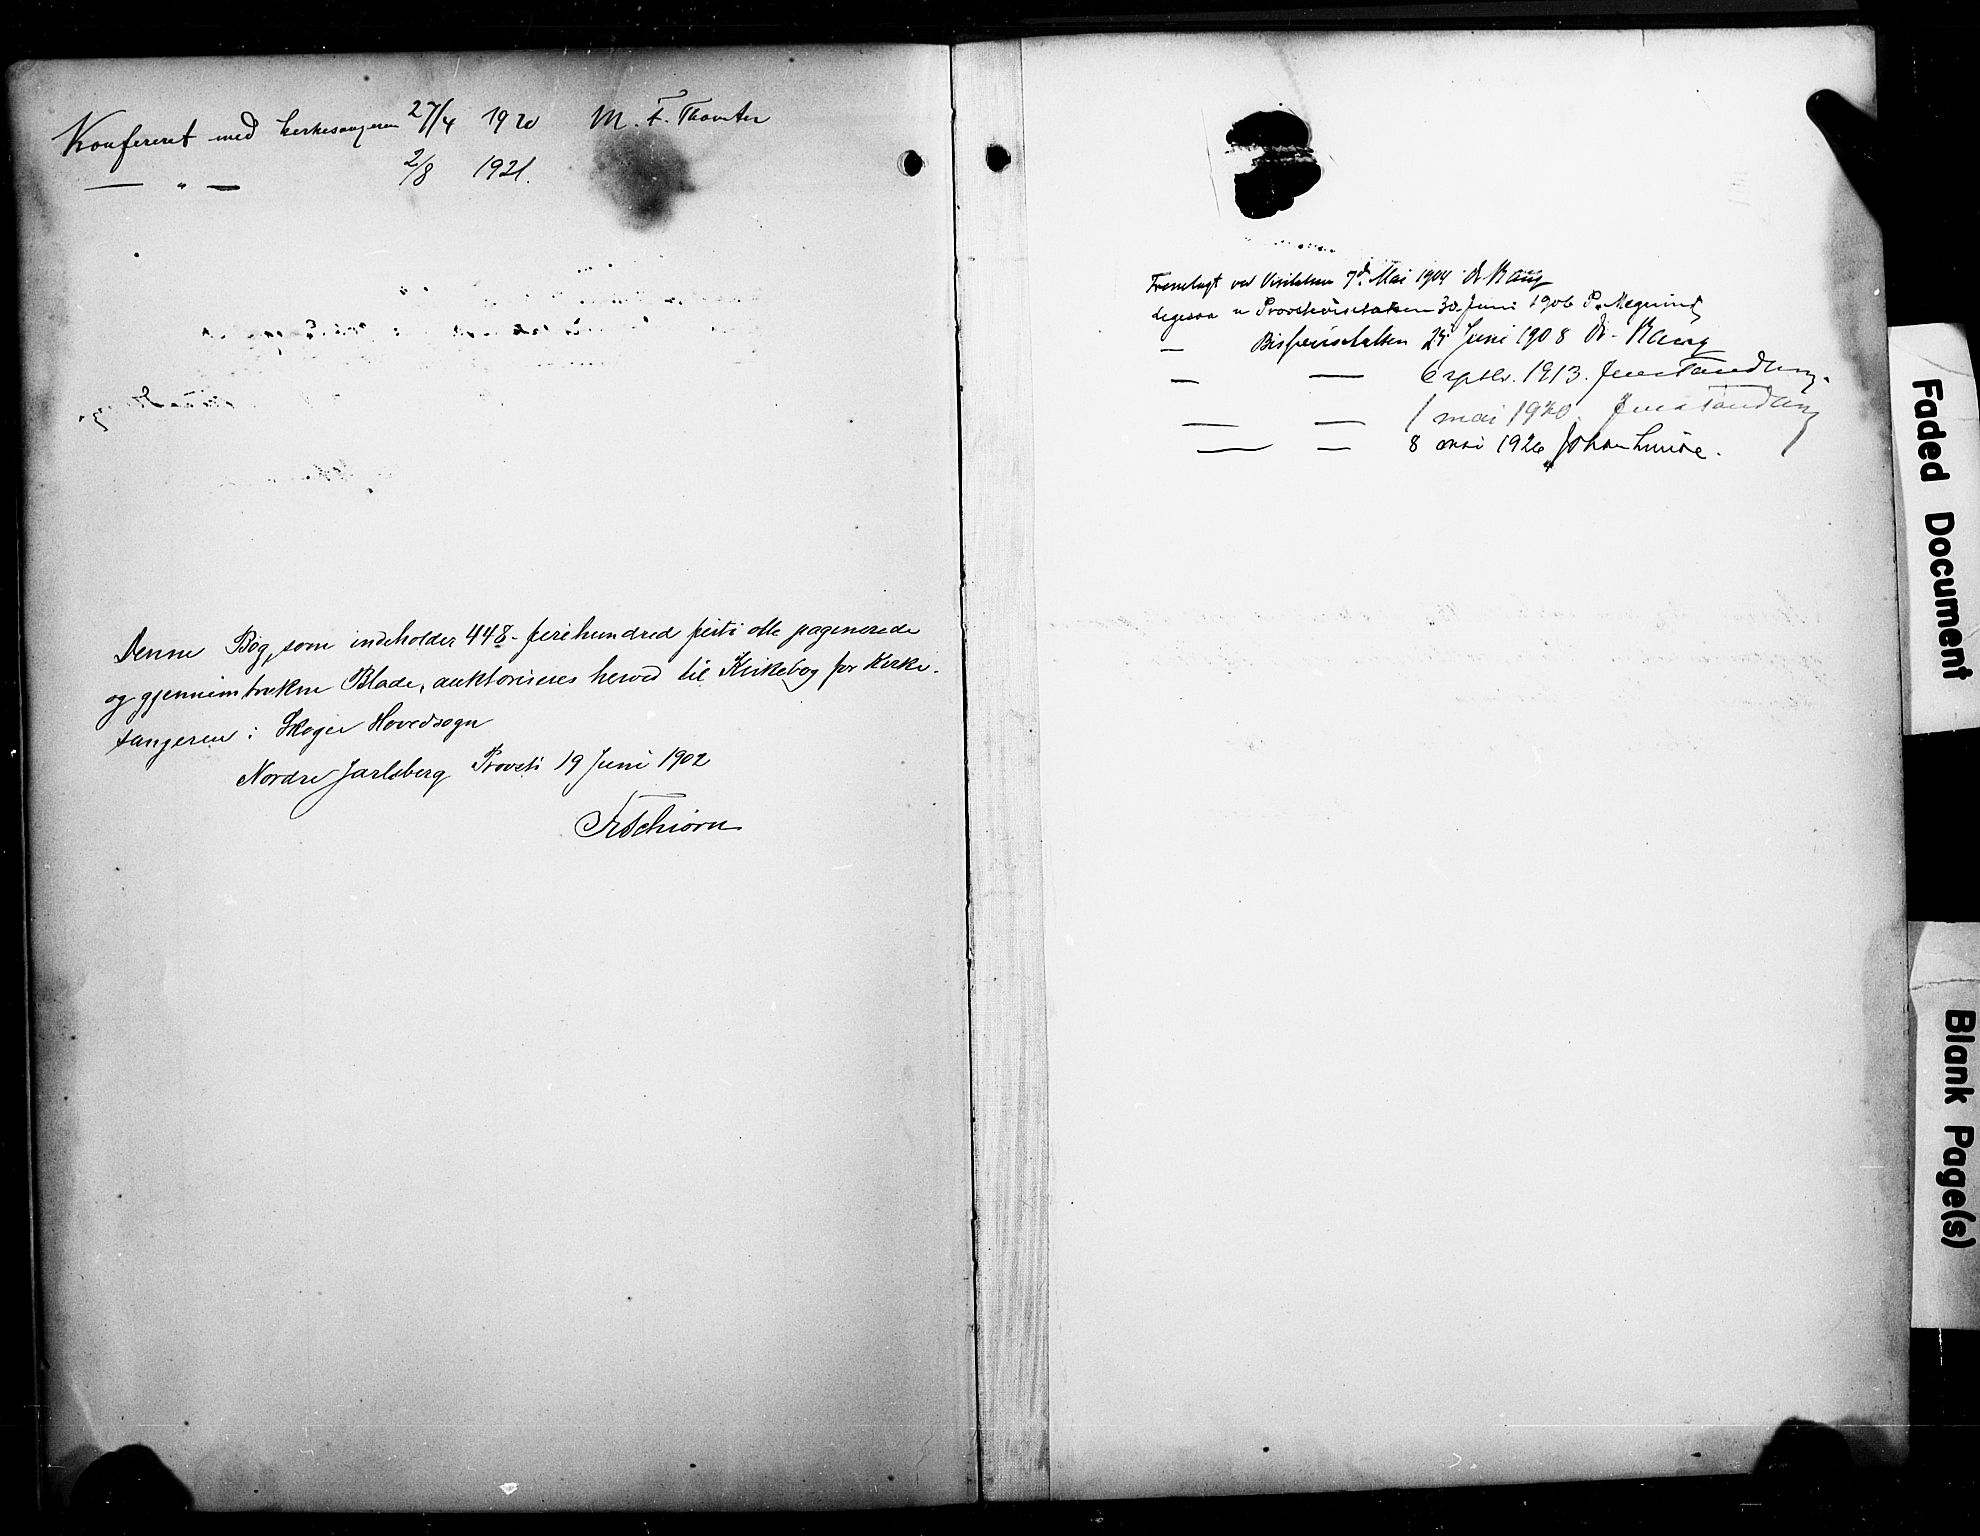 Konfereret med kirkesangeren 27/4 1920 M. F. Thomter
— " — 2/8 1921.
Denne Bog, som indeholder 448 - firehundred førti otte paginerede
og gjennemtrukne Blade, auktoriseres herved til Kirkebog for Kirke-
sangeren i Skoger Hovedsogn
Nordre Jarlsberg Provsti 19 Juni 1902
Fremlagt ved Visitatsen 7d. Mai 1904 Dr Bang
Ligesaa v Provstevisitatsen 30. Juni 1906
— Bispevisitatsen 25 Juni 1908 Dr. Bang
— — 6 septbr. 1913. Jens Tandberg.
— — 1 mai 1920. Jens Tandberg
— — 8 mai 1926 Johan Lunde.
Faded Document
Blank Page(s)